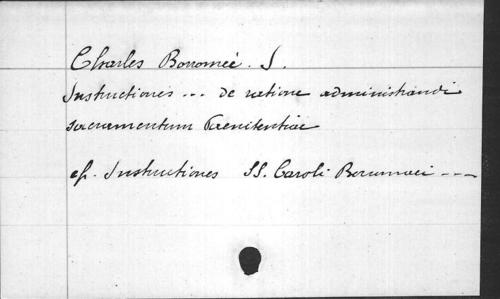 Charles Borromée. S.
Instructiones ... de ratione administrandi
sacramentum Paenitentiae
cf. Instructiones SS. Caroli Borrumaei ---